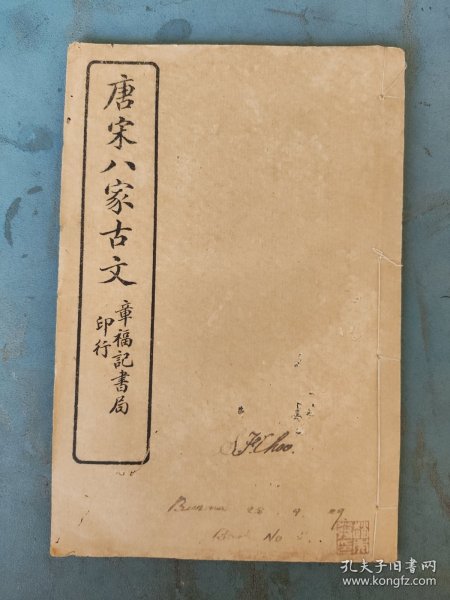 唐宋八家古文
章福記書局
印行
28 . 9 . 29
No
孔夫子旧书网
www.kongfz.com